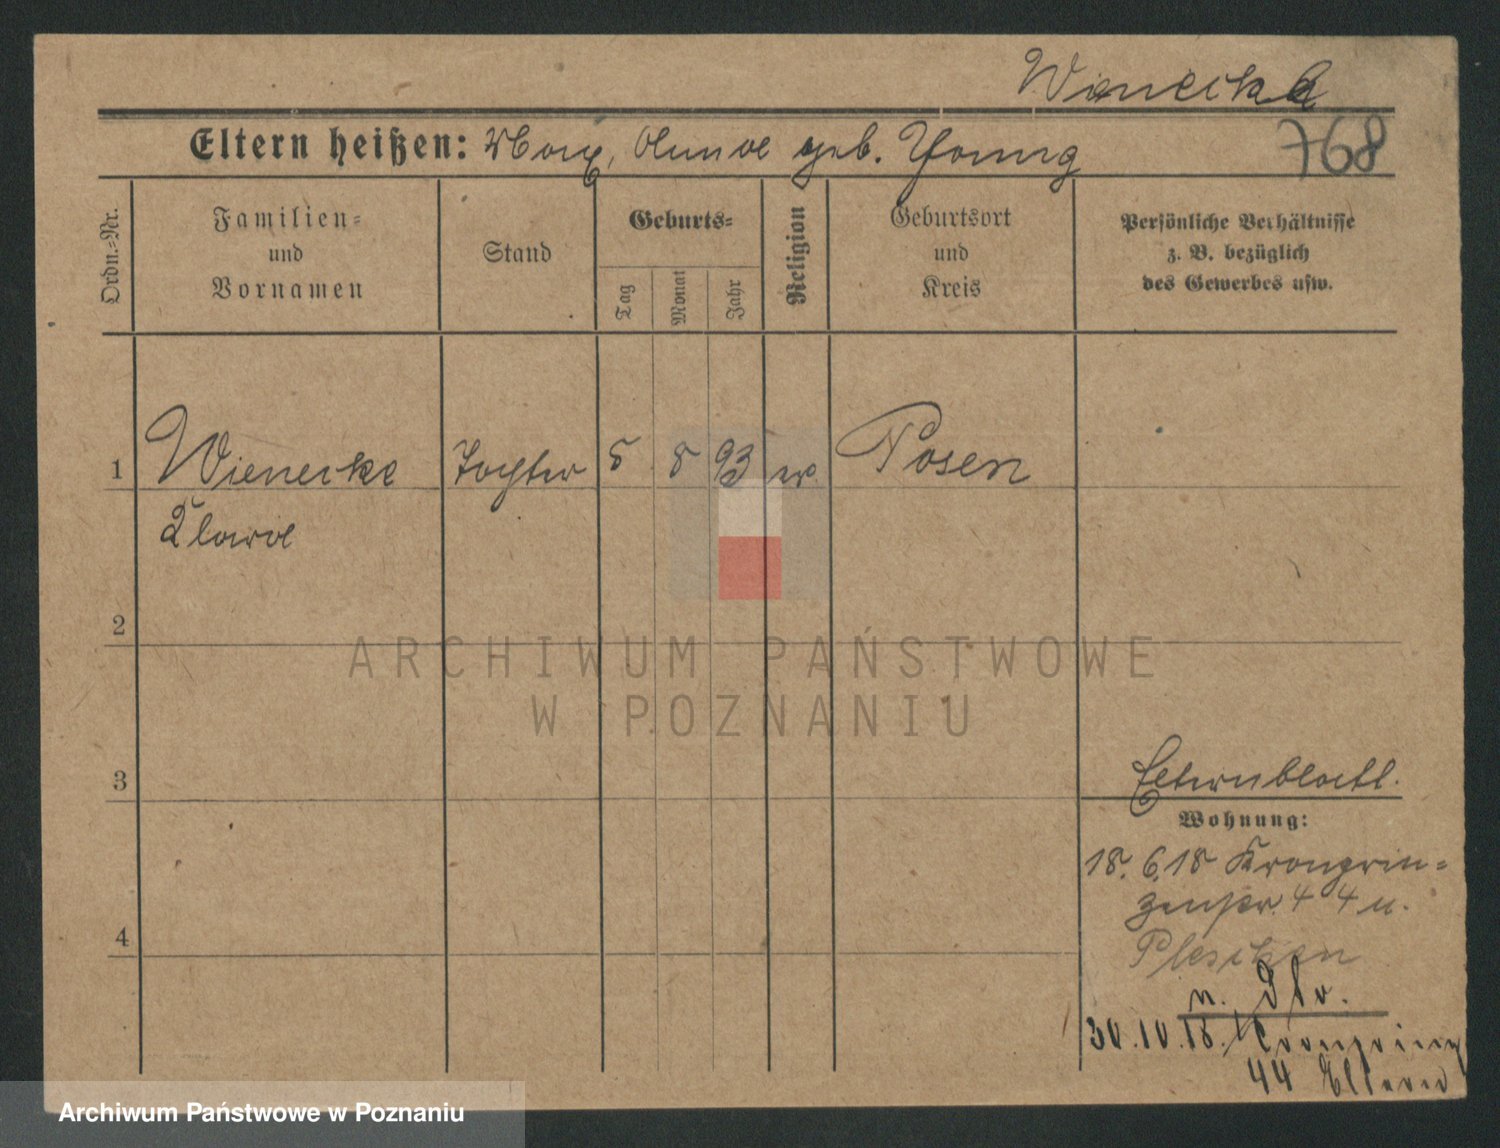 Wienecke
768
Eltern heißen: Max, Anna geb. Young
Ordn.=Nr.
Familien=
und
Vornamen
Stand
Geburts=
Tag
Monat
Jahr
Religion
Geburtsort
und
Kreis
Persönliche Verhältnisse
z. B. bezüglich
des Gewerbes usw.
1
Wienecke Tochter 5 8 93 ev. Posen
Klara
2
ARCHIWUM PAŃSTWOWE
W POZNANIU
3
Elternblattl.
Wohnung:
18. 6. 18 Kronprin=
zenstr. 44 u.
Pleschen
30.10.18. Kronprinz
44 Eltern
4
Archiwum Państwowe w Poznaniu